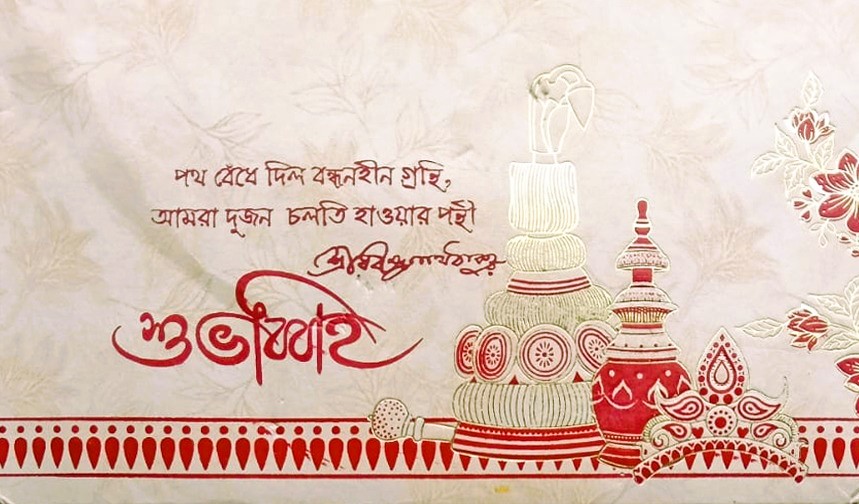 পথ বেঁধে দিল বন্ধনহীন গ্রন্থি,
আমরা দুজন চলতি হাওয়ার পন্থী
শ্রীরবীন্দ্রনাথ ঠাকুর
শুভবিবাহ